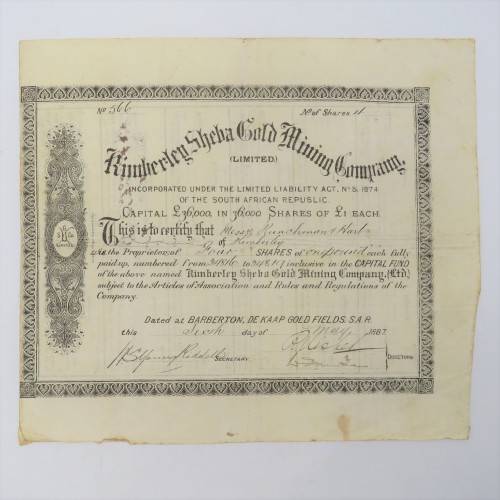 No 566 No of Shares 4
Kimberley Sheba Gold Mining Company,
(LIMITED.)
INCORPORATED UNDER THE LIMITED LIABILITY ACT, No 5, 1874
OF THE SOUTH AFRICAN REPUBLIC.
CAPITAL £36,000, IN 36,000 SHARES OF £1 EACH.
This is to certify that Messrs
of Kimberley
As the Proprietors of Four SHARES of one pound each fully
paid up, numbered from to inclusive in the CAPITAL FUND
of the above named Kimberley Sheba Gold Mining Company, (Ltd)
subject to the Articles of Association and Rules and Regulations of the
Company.
Dated at BARBERTON, DE KAAP GOLD FIELDS. S.A.R.
this Sixth day of May 1887.
SECRETARY.
DIRECTORS.